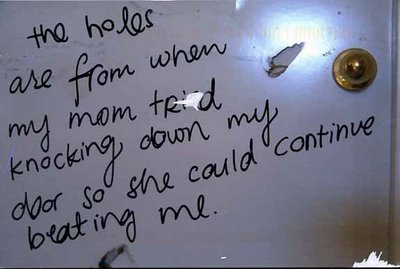 the holes
are from when
my mom tried
knocking down my
door so she could continue
beating me.